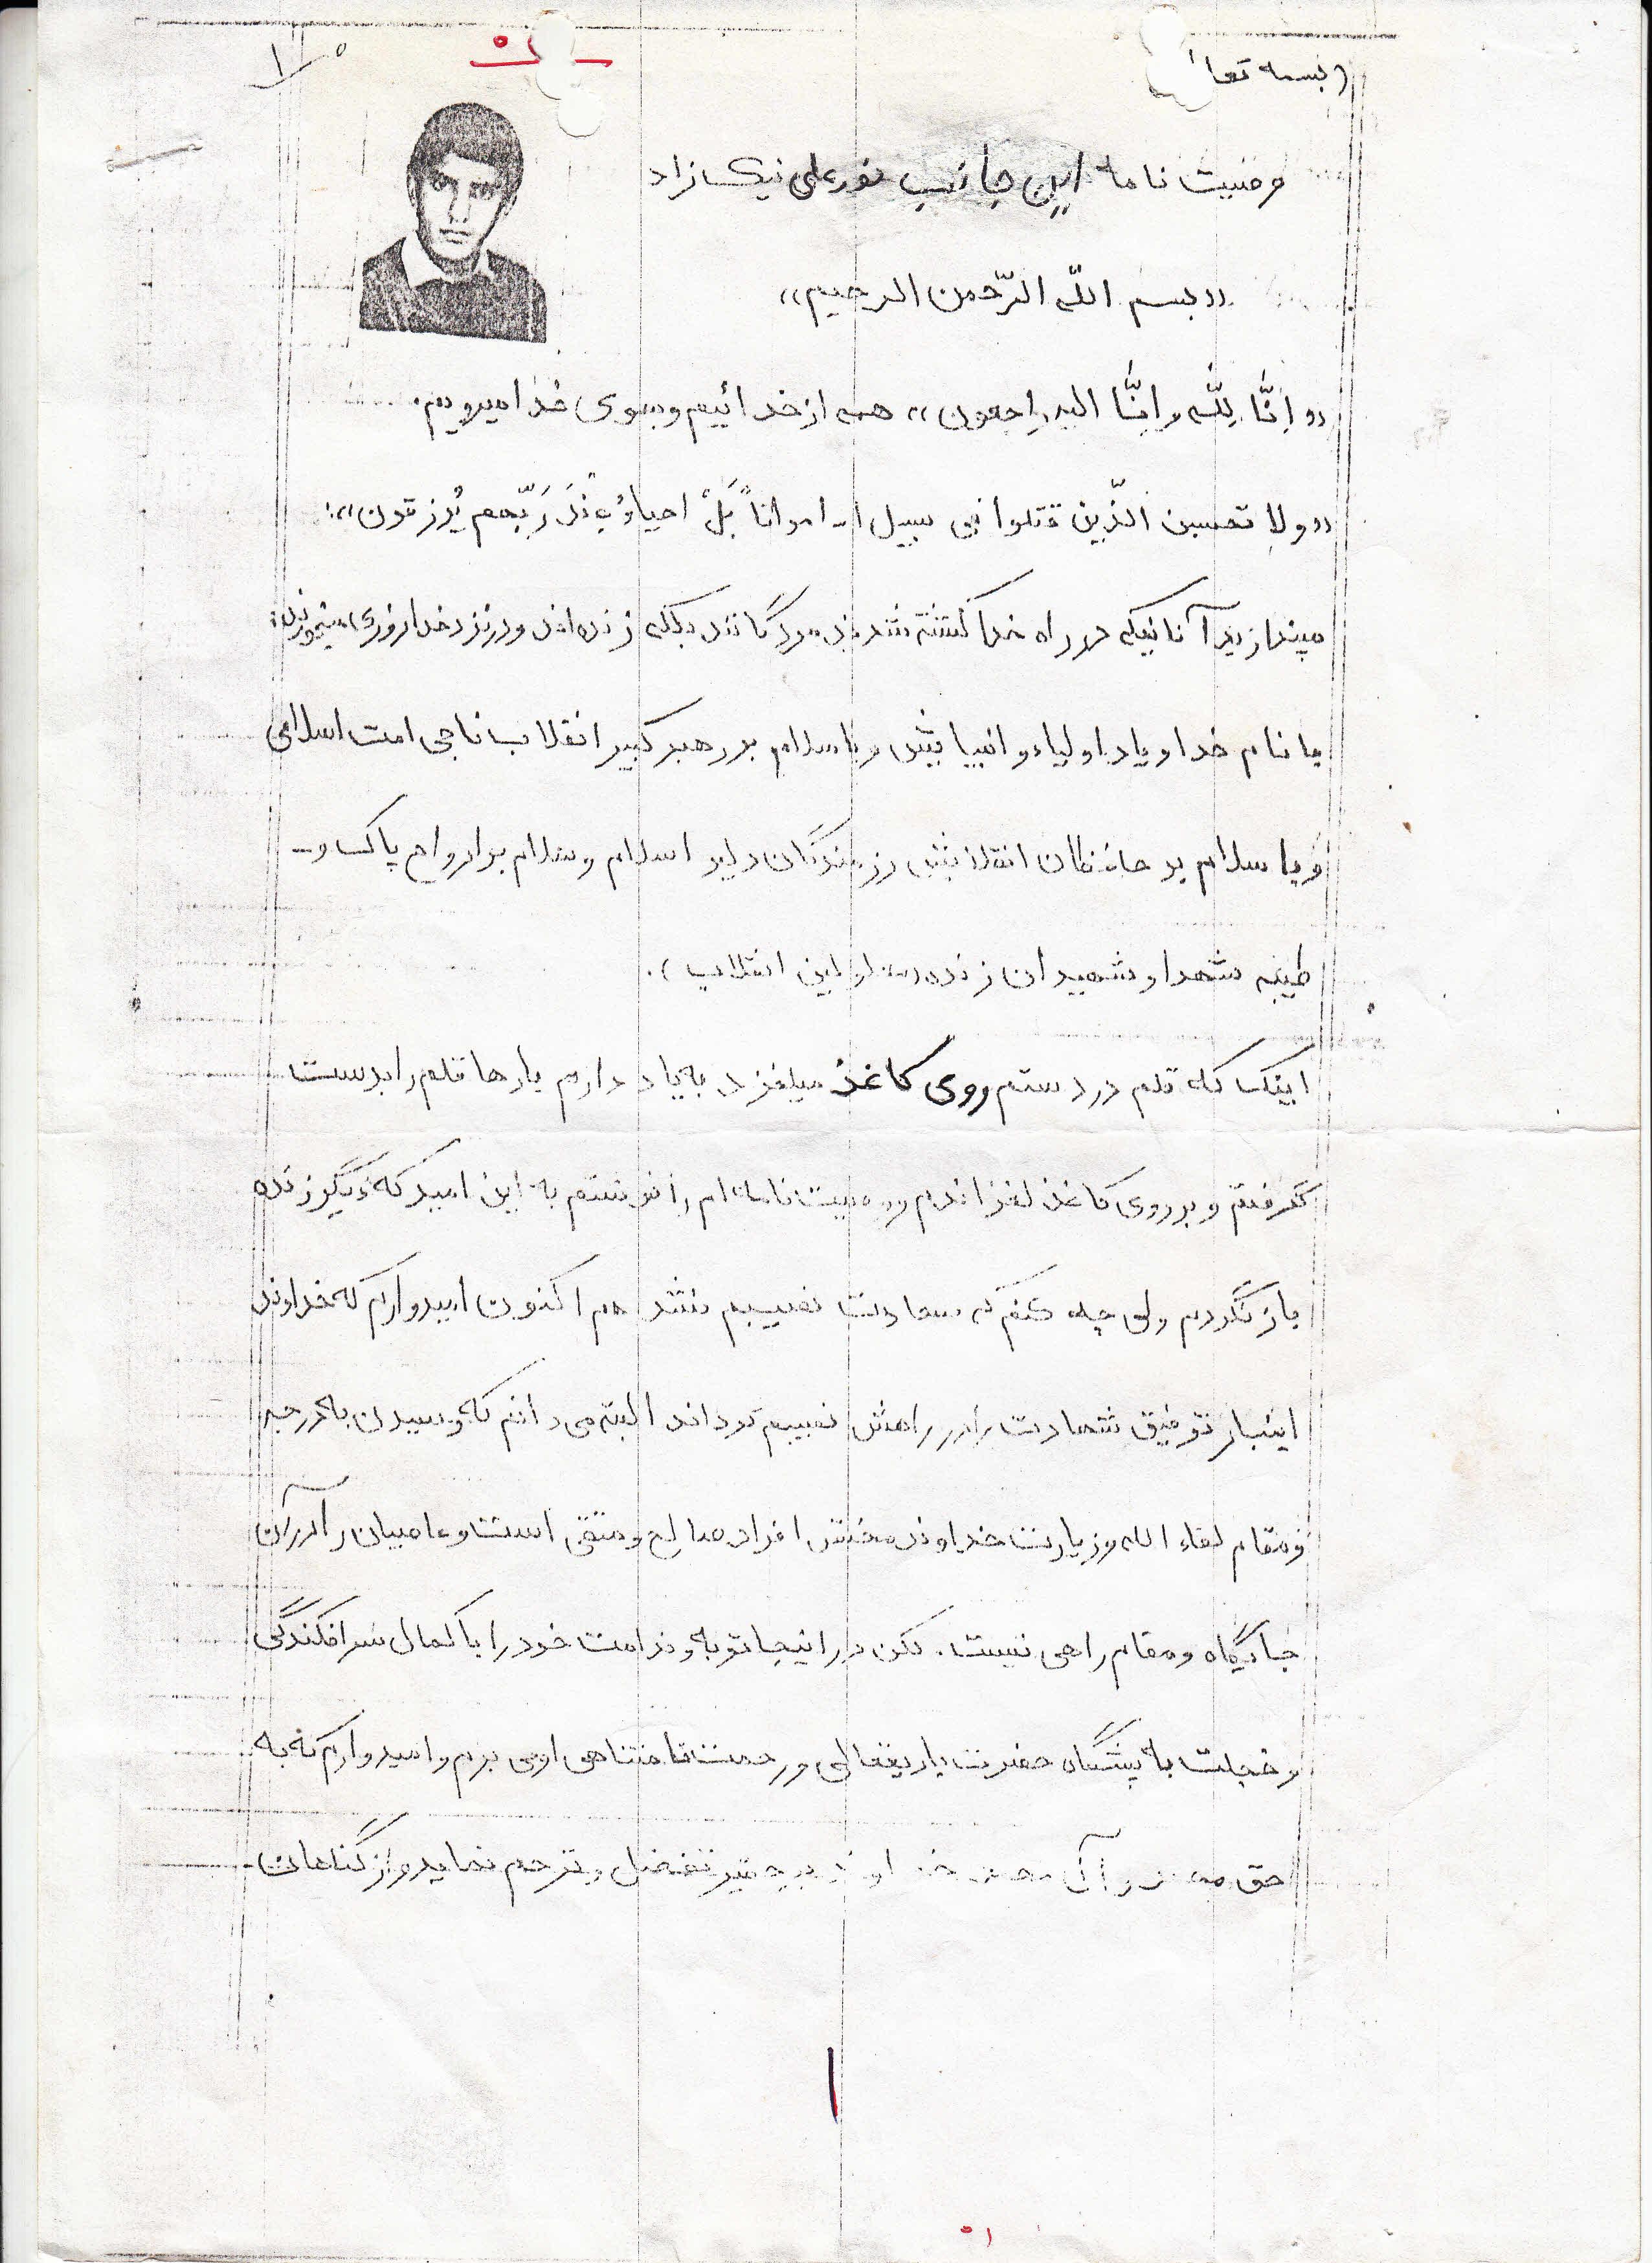 (بسمه تعا
وصیت نامه این جانب نورعلی نیک نژاد
«بسم الله الرّحمن الرحیم»
«اِنَّا لِلّه و اِنَّا الیه راجعون» همه از خدائیم و بسوی خدا میرویم.
«ولا تحسبن الّذین قتلوا فی سبیل ا... امواتاً بَلْ احیاءُ عِنْدَ رَبِّهم یُرزقون»
مپندازید آنانیکه در راه خدا کشته شدند مردگانند بلکه زنده‌اند و در نزد خدا روزی میخورند
با نام خدا و یاد اولیاء و انبیایش و با سلام بر رهبر کبیر انقلاب ناجی امت اسلامی
و با سلام بر حافظان انقلابش رزمندگان دلیر اسلام و سلام بر ارواح پاک و-
طیبه شهدا و شهیدان زنده این انقلاب).
اینک که قلم در دستم روی کاغذ میلغزد به یاد دارم بارها قلم را بدست
گرفتم و بر روی کاغذ لغزاندم و وصیت نامه ام را نوشتم به این امید که دیگر زنده
بازنگردم ولی چه کنم که سعادت نصیبم نشد هم اکنون امیدوارم که خداوند
اینبار توفیق شهادت را در راهش نصیبم گرداند البته می دانم که رسیدن به درجه
و مقام لقاء الله و زیارت خداوند مختص افراد صالح و متقی است و عاصیان را در آن
جایگاه و مقام راهی نیست. لکن در اینجا توبه و ندامت خود را با کمال سرافکندگی
و خجلت به پیشگاه حضرت باریتعالی و رحمت نامتناهی او می برم و امیدوارم که به
حق محمد و آل محمد خداوند بر حقیر تفضل و ترحم نماید و از گناهان
۱